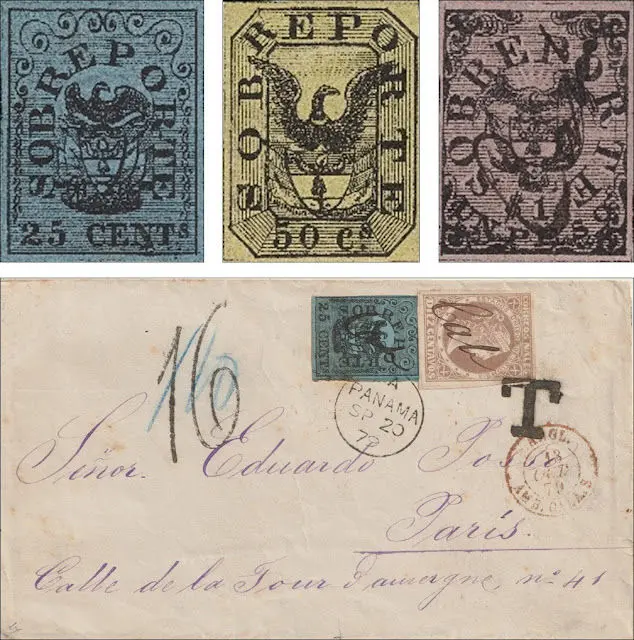 SOBREPORTE
25 CENTs
SOBREPORTE
50 Cs
SOBREPORTE
SOBREPORTE
25 CENTs
16
A
PANAMA
SP 20
T
Señor. Eduardo Posso
Paris.
Calle de la Tour d'auvergne, no 41